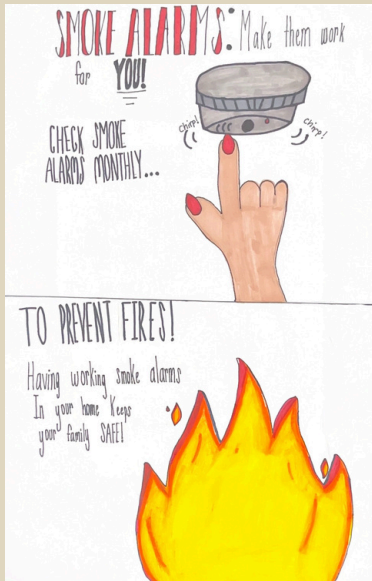 SMOKE ALARMS: Make them work
for YOU!
Chirp!
Chirp!
CHECK SMOKE
ALARMS MONTHLY...
TO PREVENT FIRES!
Having working smoke alarms
In your home Keeps
your family SAFE!